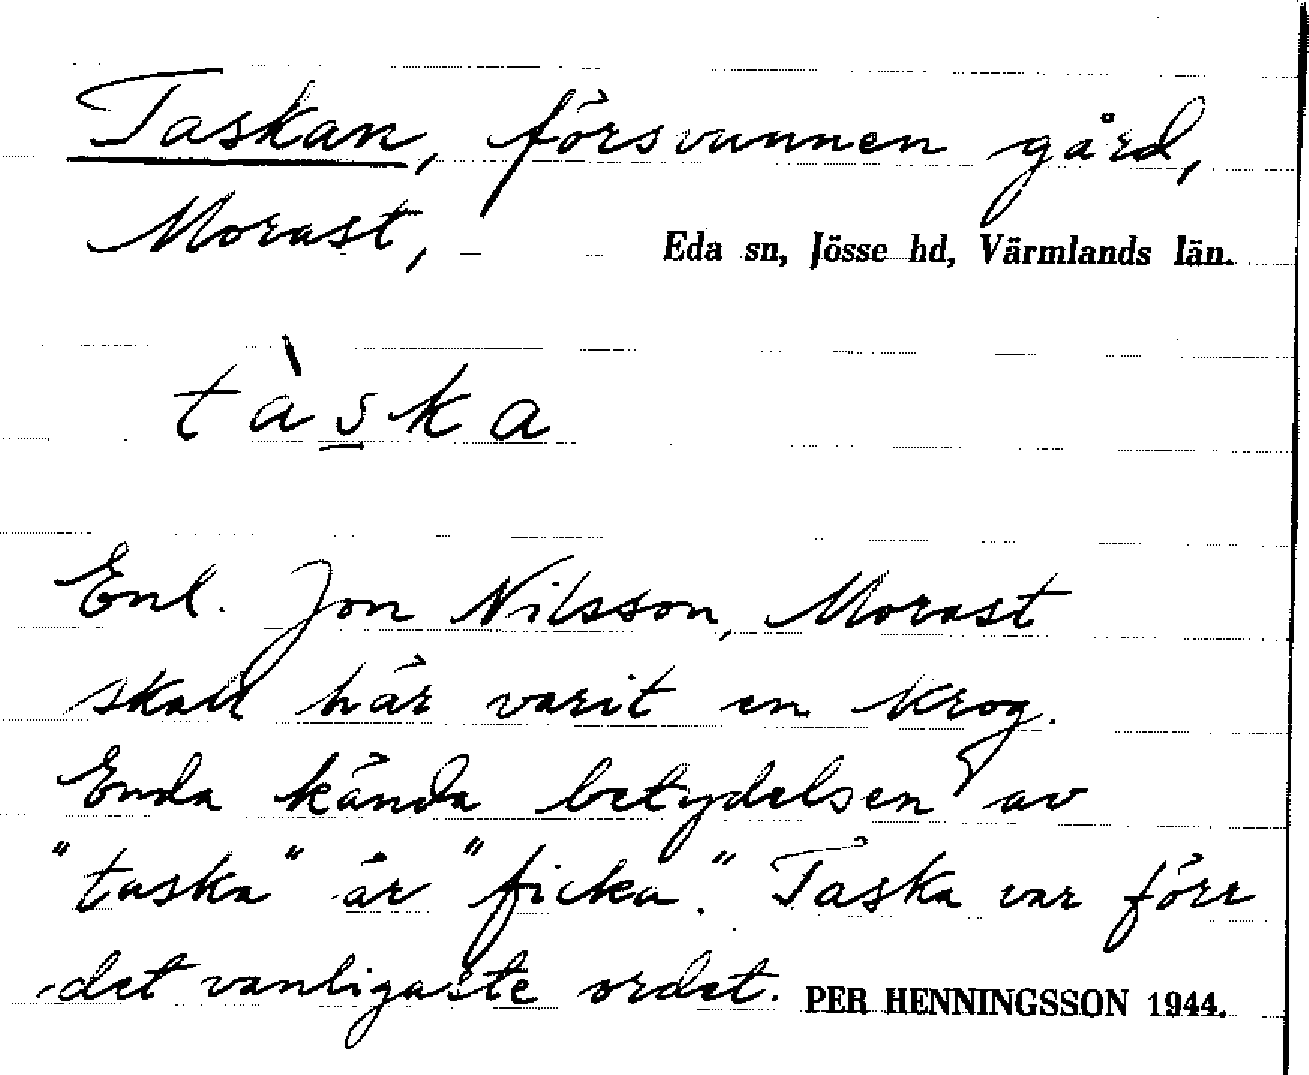 Taskan, försvunnen gård,
Morast, Eda sn, Jösse hd, Värmlands län.
tàska
Enl. Jon Nilsson, Morast
skall här varit en krog.
Enda kända betydelsen av
"taska" är "ficka." Taska var förr
det vanligaste ordet. PER HENNINGSSON 1944.